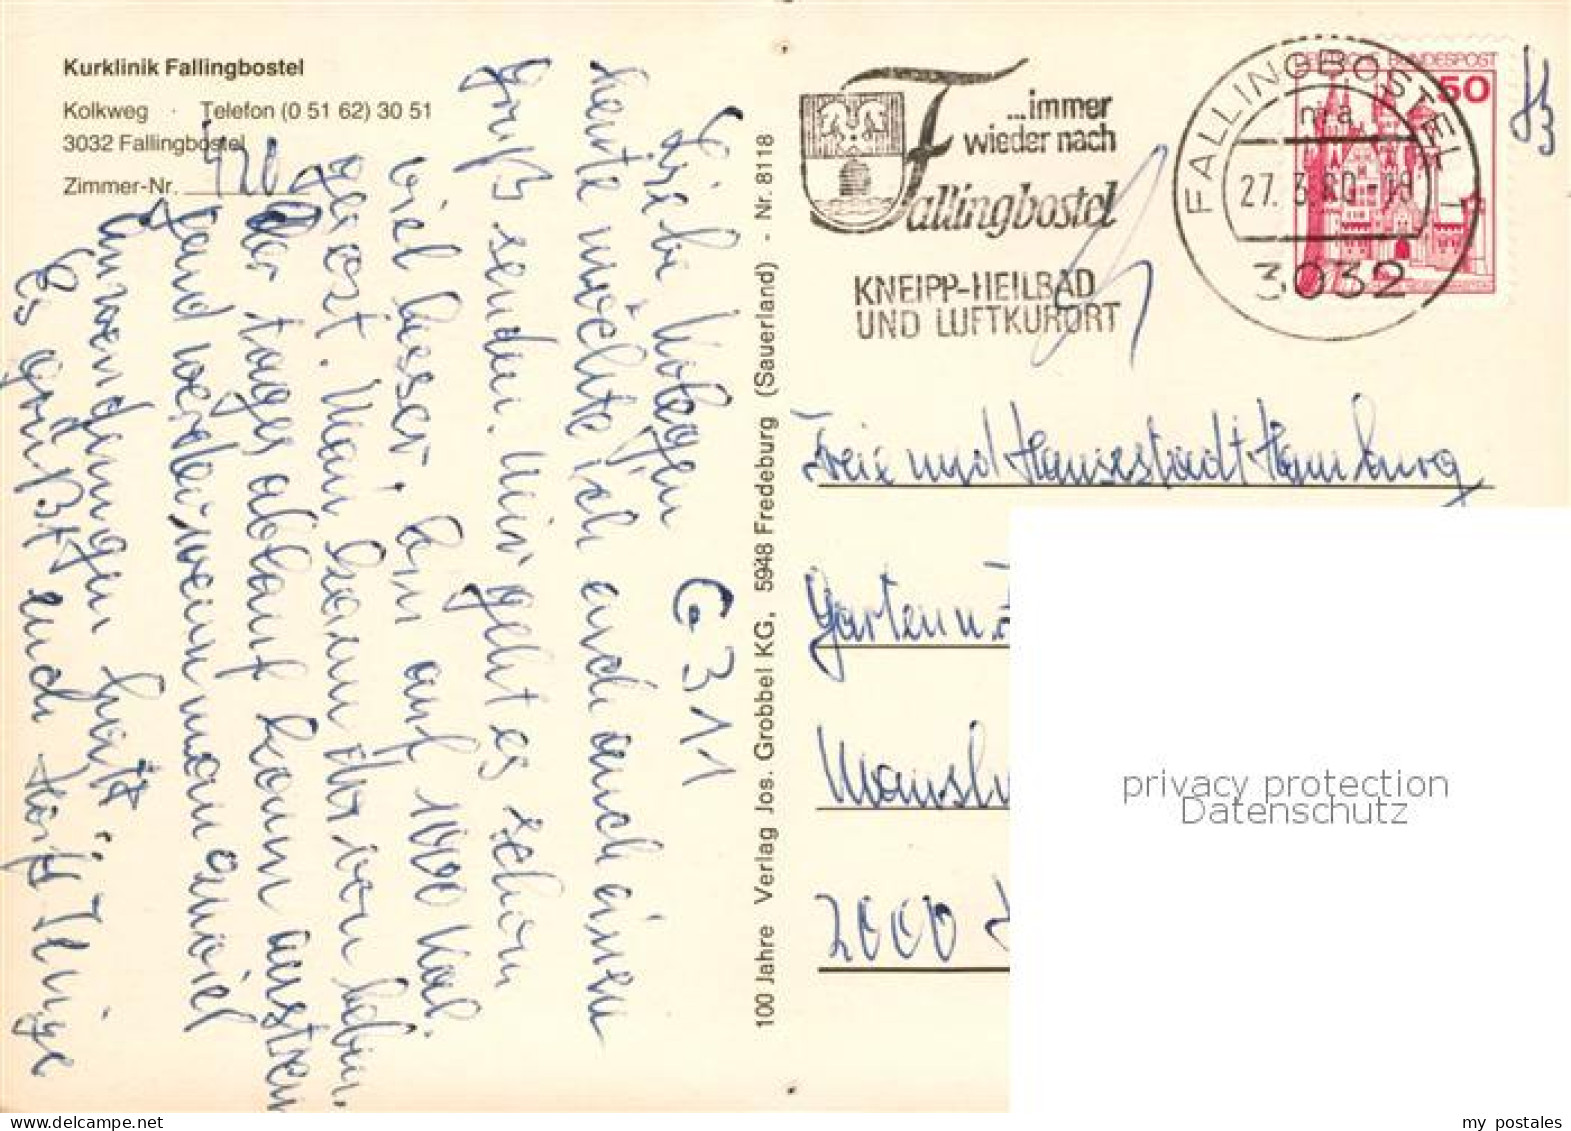 Kurklinik Fallingbostel
Kolkweg · Telefon (0 51 62) 30 51
3032 Fallingbostel
Zimmer-Nr. 420
Ga 311
Liebe Kolegen
Heute möchte ich euch auch einen
Gruß senden. Mir geht es schon
viel besser, bin auf 1000 Kal.
gesezt. Man kann davon leben.
Der tages ablauf kann anstren
gend werden wenn man zuviel
Anwendungen hat.
Es grüßt euch
100 Jahre Verlag Jos. Grobbel KG, 5948 Fredeburg (Sauerland) - Nr. 8118
...immer
wieder nach
Fallingbostel
KNEIPP-HEILBAD
UND LUFTKURORT
FALLINGBOSTEL 1
ma
27. 3.80-18
3032
DEUTSCHE BUNDESPOST
50
Freie und Hansestadt Hamburg
Garten u.
2000
privacy protection
Datenschutz
my_postales